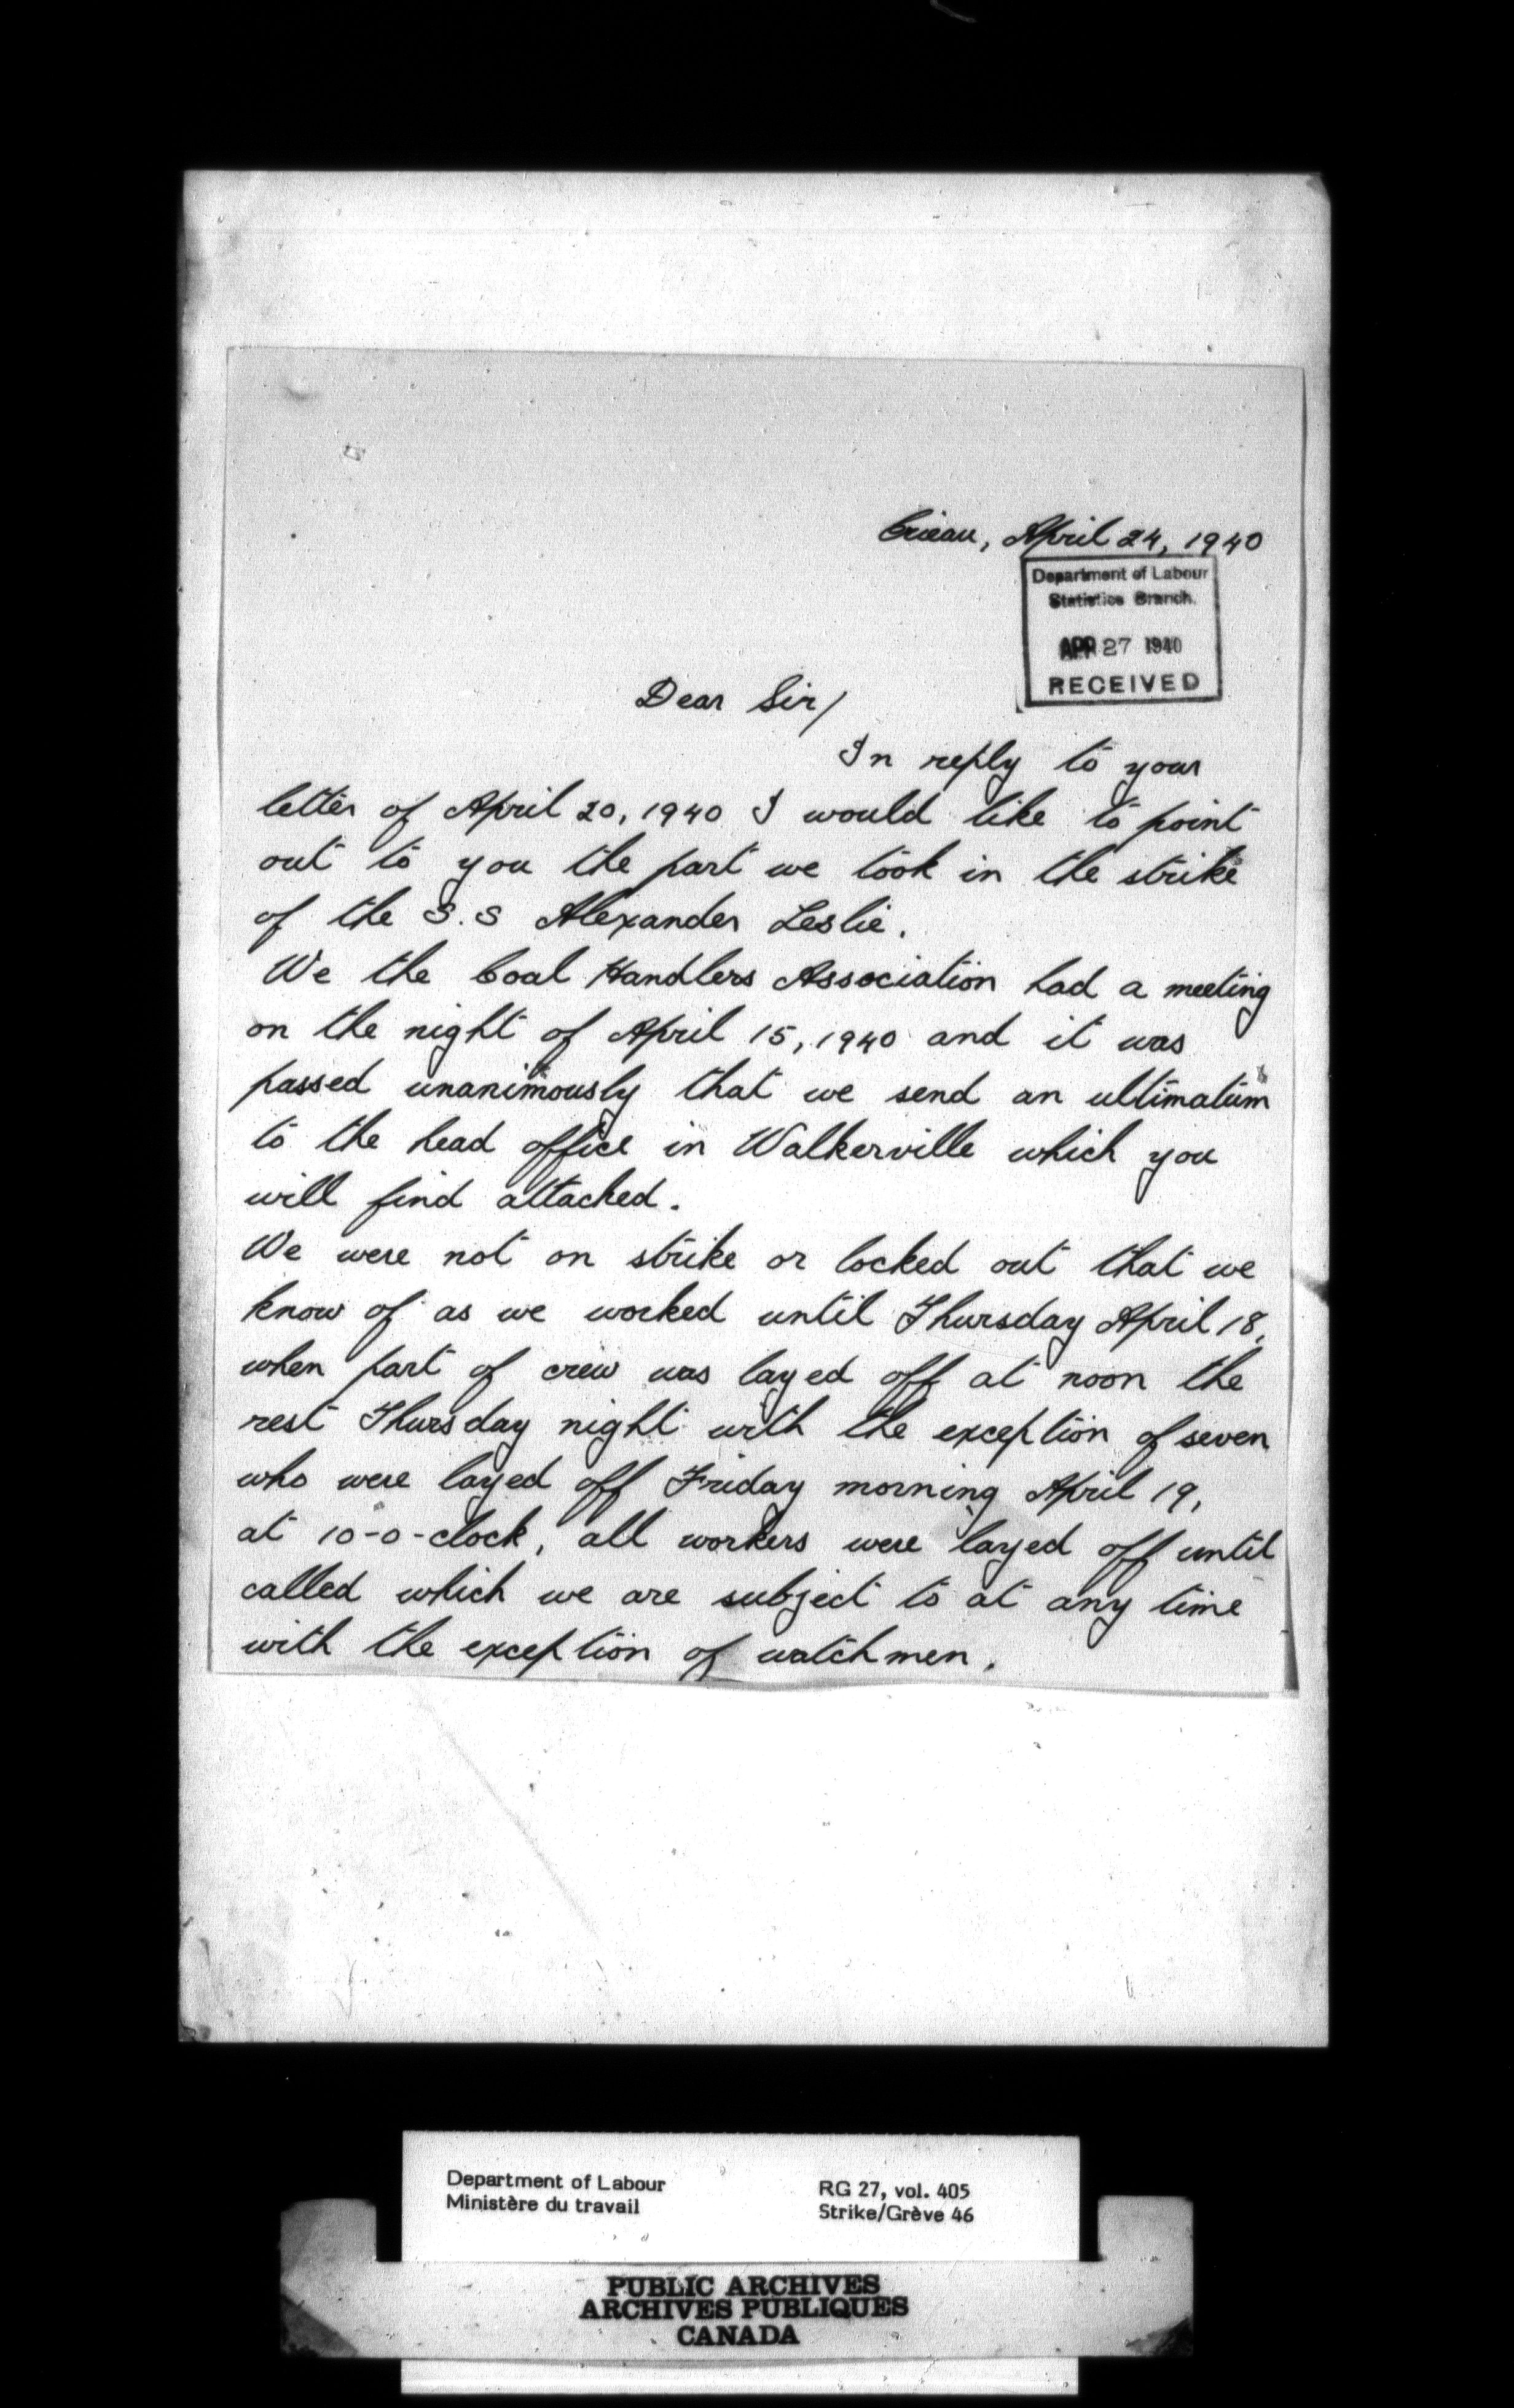 Erieau, April 24, 1940
Department of Labour
Statistics Branch.
APR 27 1940
RECEIVED
Dear Sir/
In reply to your
letter of April 20, 1940 I would like to point
out to you the part we took in the strike
of the S.S Alexander Leslie.
We the Coal Handlers Association had a meeting
on the night of April 15, 1940 and it was
passed unanimously that we send an ultimatum
to the head office in Walkerville which you
will find attached.
We were not on strike or locked out that we
know of as we worked until Thursday April 18,
when part of crew was layed off at noon the
rest Thursday night with the exception of seven
who were layed off Friday morning April 19,
at 10-o-clock, all workers were layed off until
called which we are subject to at any time
with the exception of watchmen.
Department of Labour
Ministère du travail
RG 27, vol. 405
Strike/Grève 46
PUBLIC ARCHIVES
ARCHIVES PUBLIQUES
CANADA